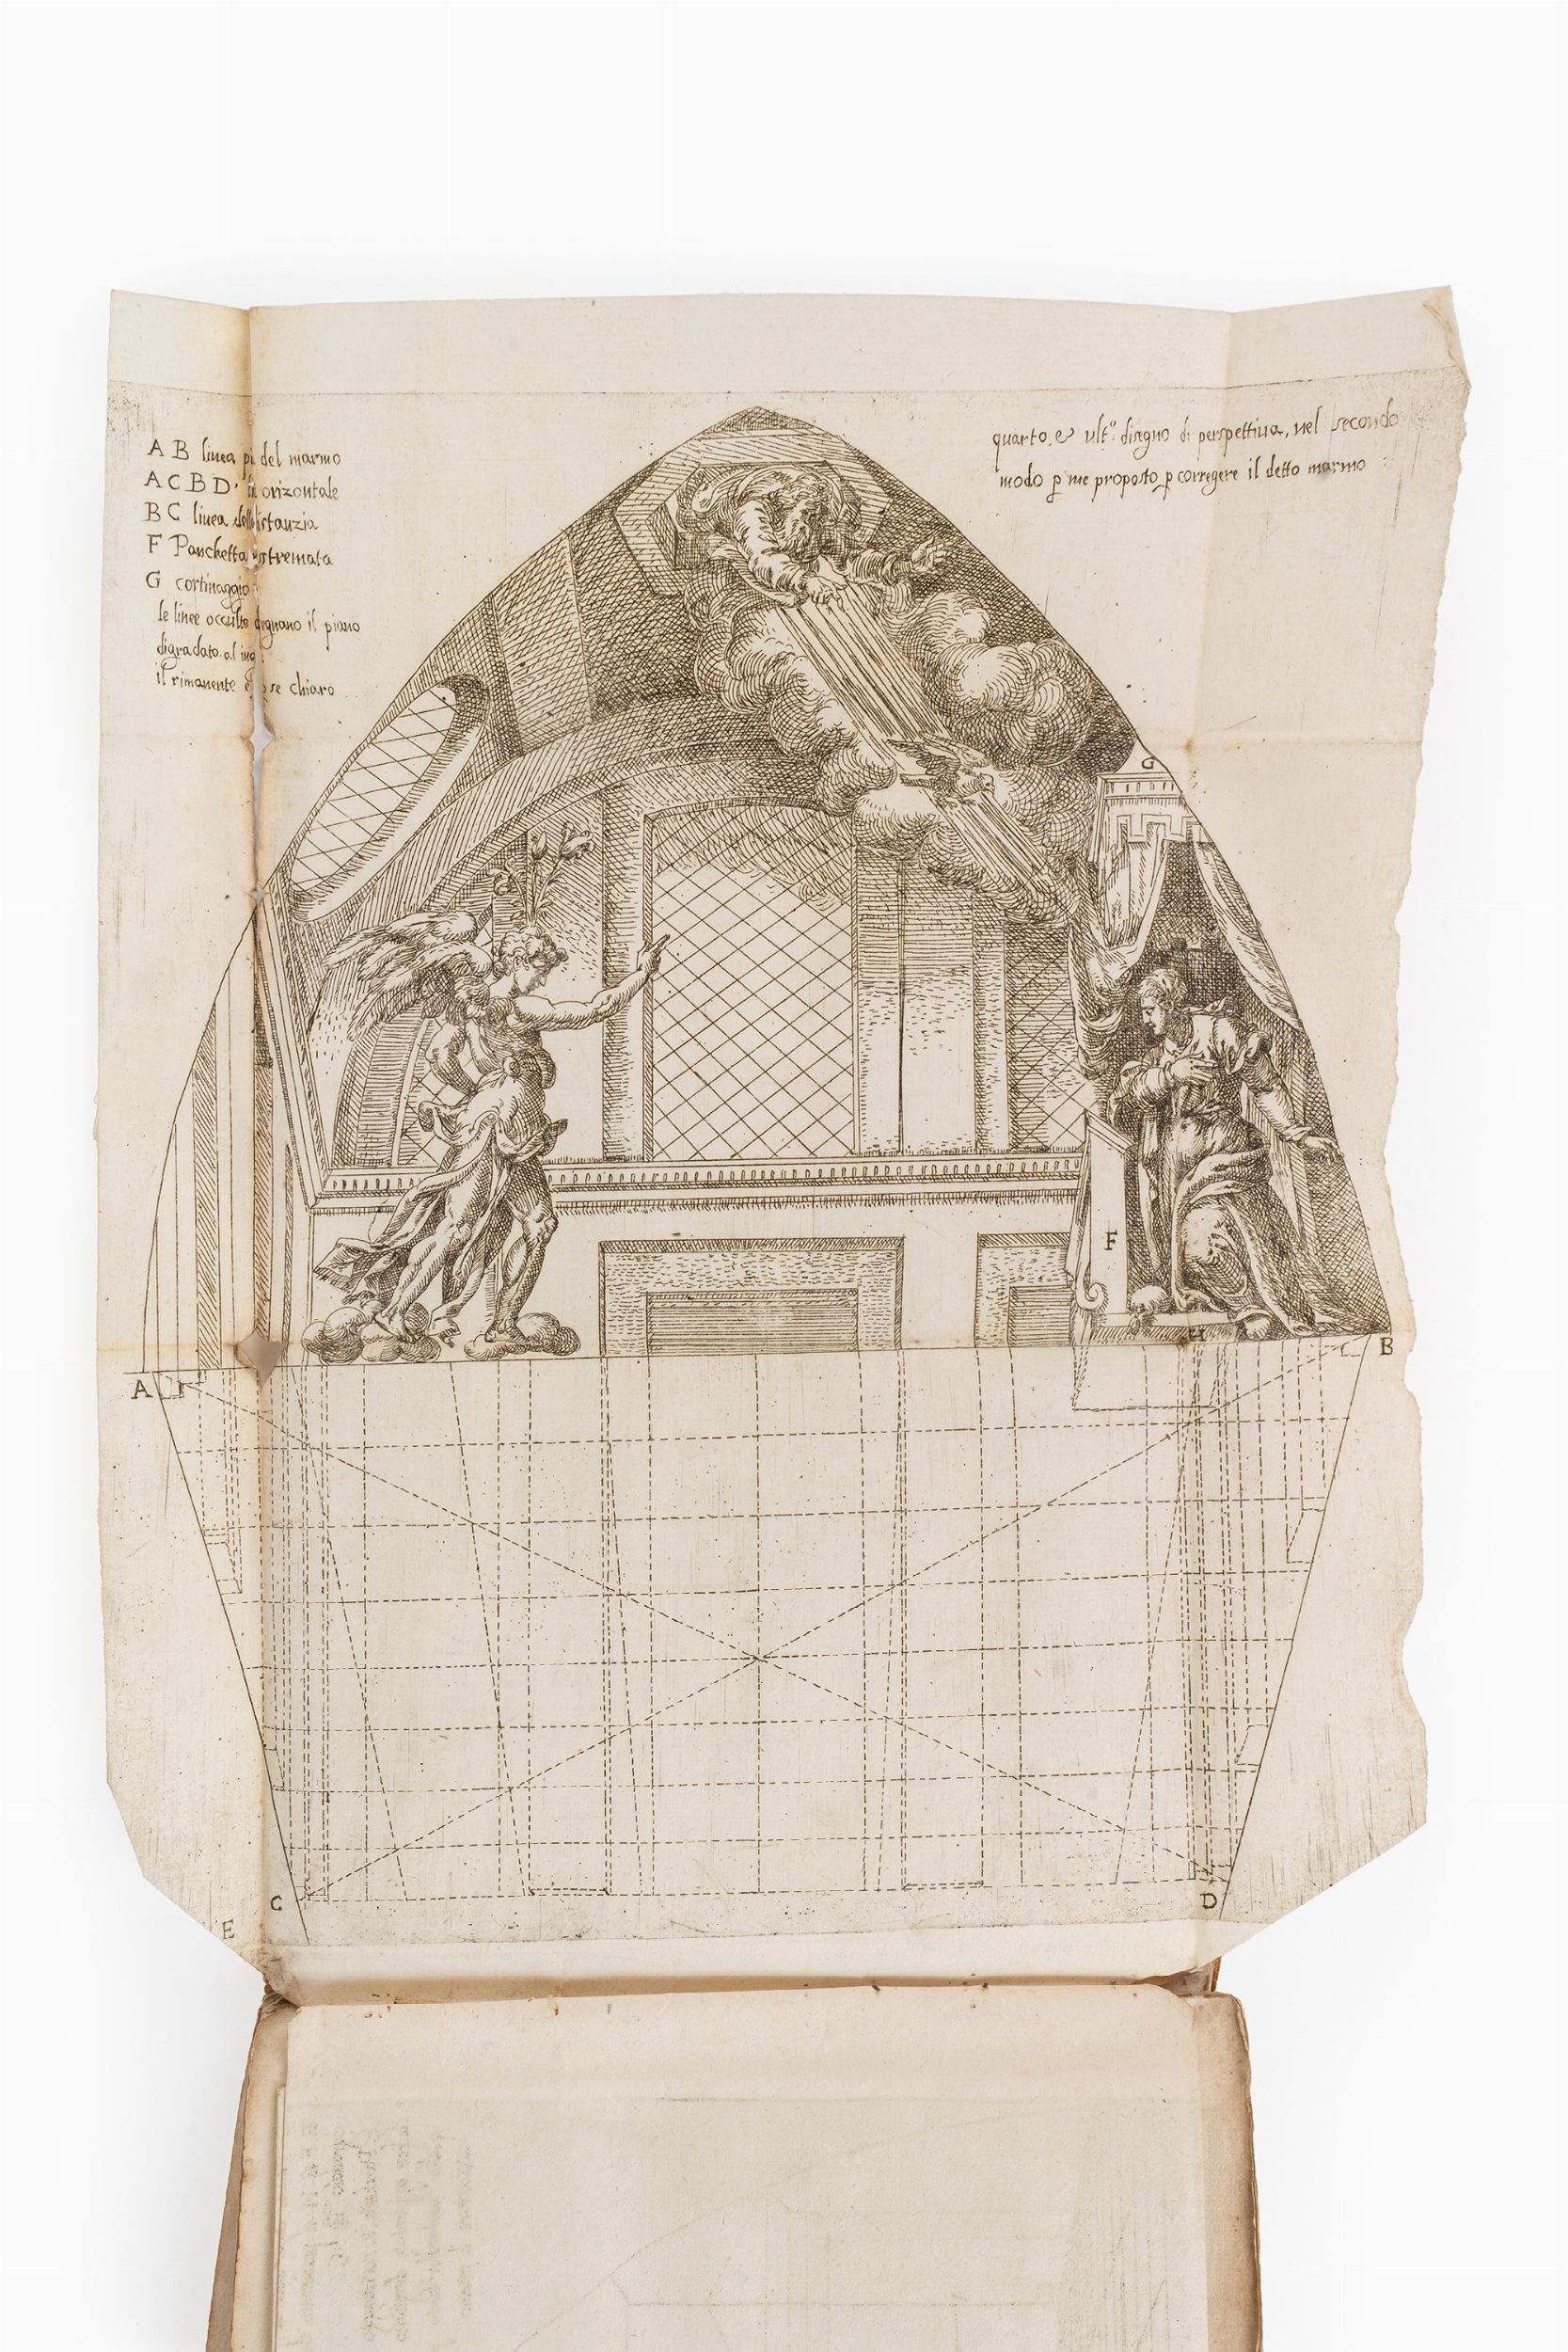 A B linea del marmo
A C B D orizontale
B C linea della distanzia
F Panchetta estremata
G cortinaggio
le linee occulte degnano il piano
digradato al
il rimanente chiaro
quarto, e ult.º disegno di perspettiua, nel secondo
modo p me proposto p corregere il detto marmo
G
F
H
A
B
C
D
E